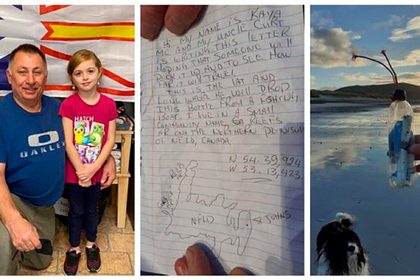 MATCH
OAKLEY
HI MY NAME IS KAYA
ME AND MY UNCLE CURT
IS WRITING THIS LETTER
HOPEING THAT SOMEONE WILL
PICK IT UP AND TO SEE HOW
FAR IT WILL TAKE!
THIS IS THE LAT AND
LONG WHERE HE WILL DROP
THIS BOTTLE FROM A FISHING
BOAT. I LIVE IN A SMALL
COMMUNITY NAME REEFS
HR ON THE NORTHERN PENINSULA
OF NFLD, CANADA
N 54. 39,924
W 53. 13,423
NFLD
JOHNS